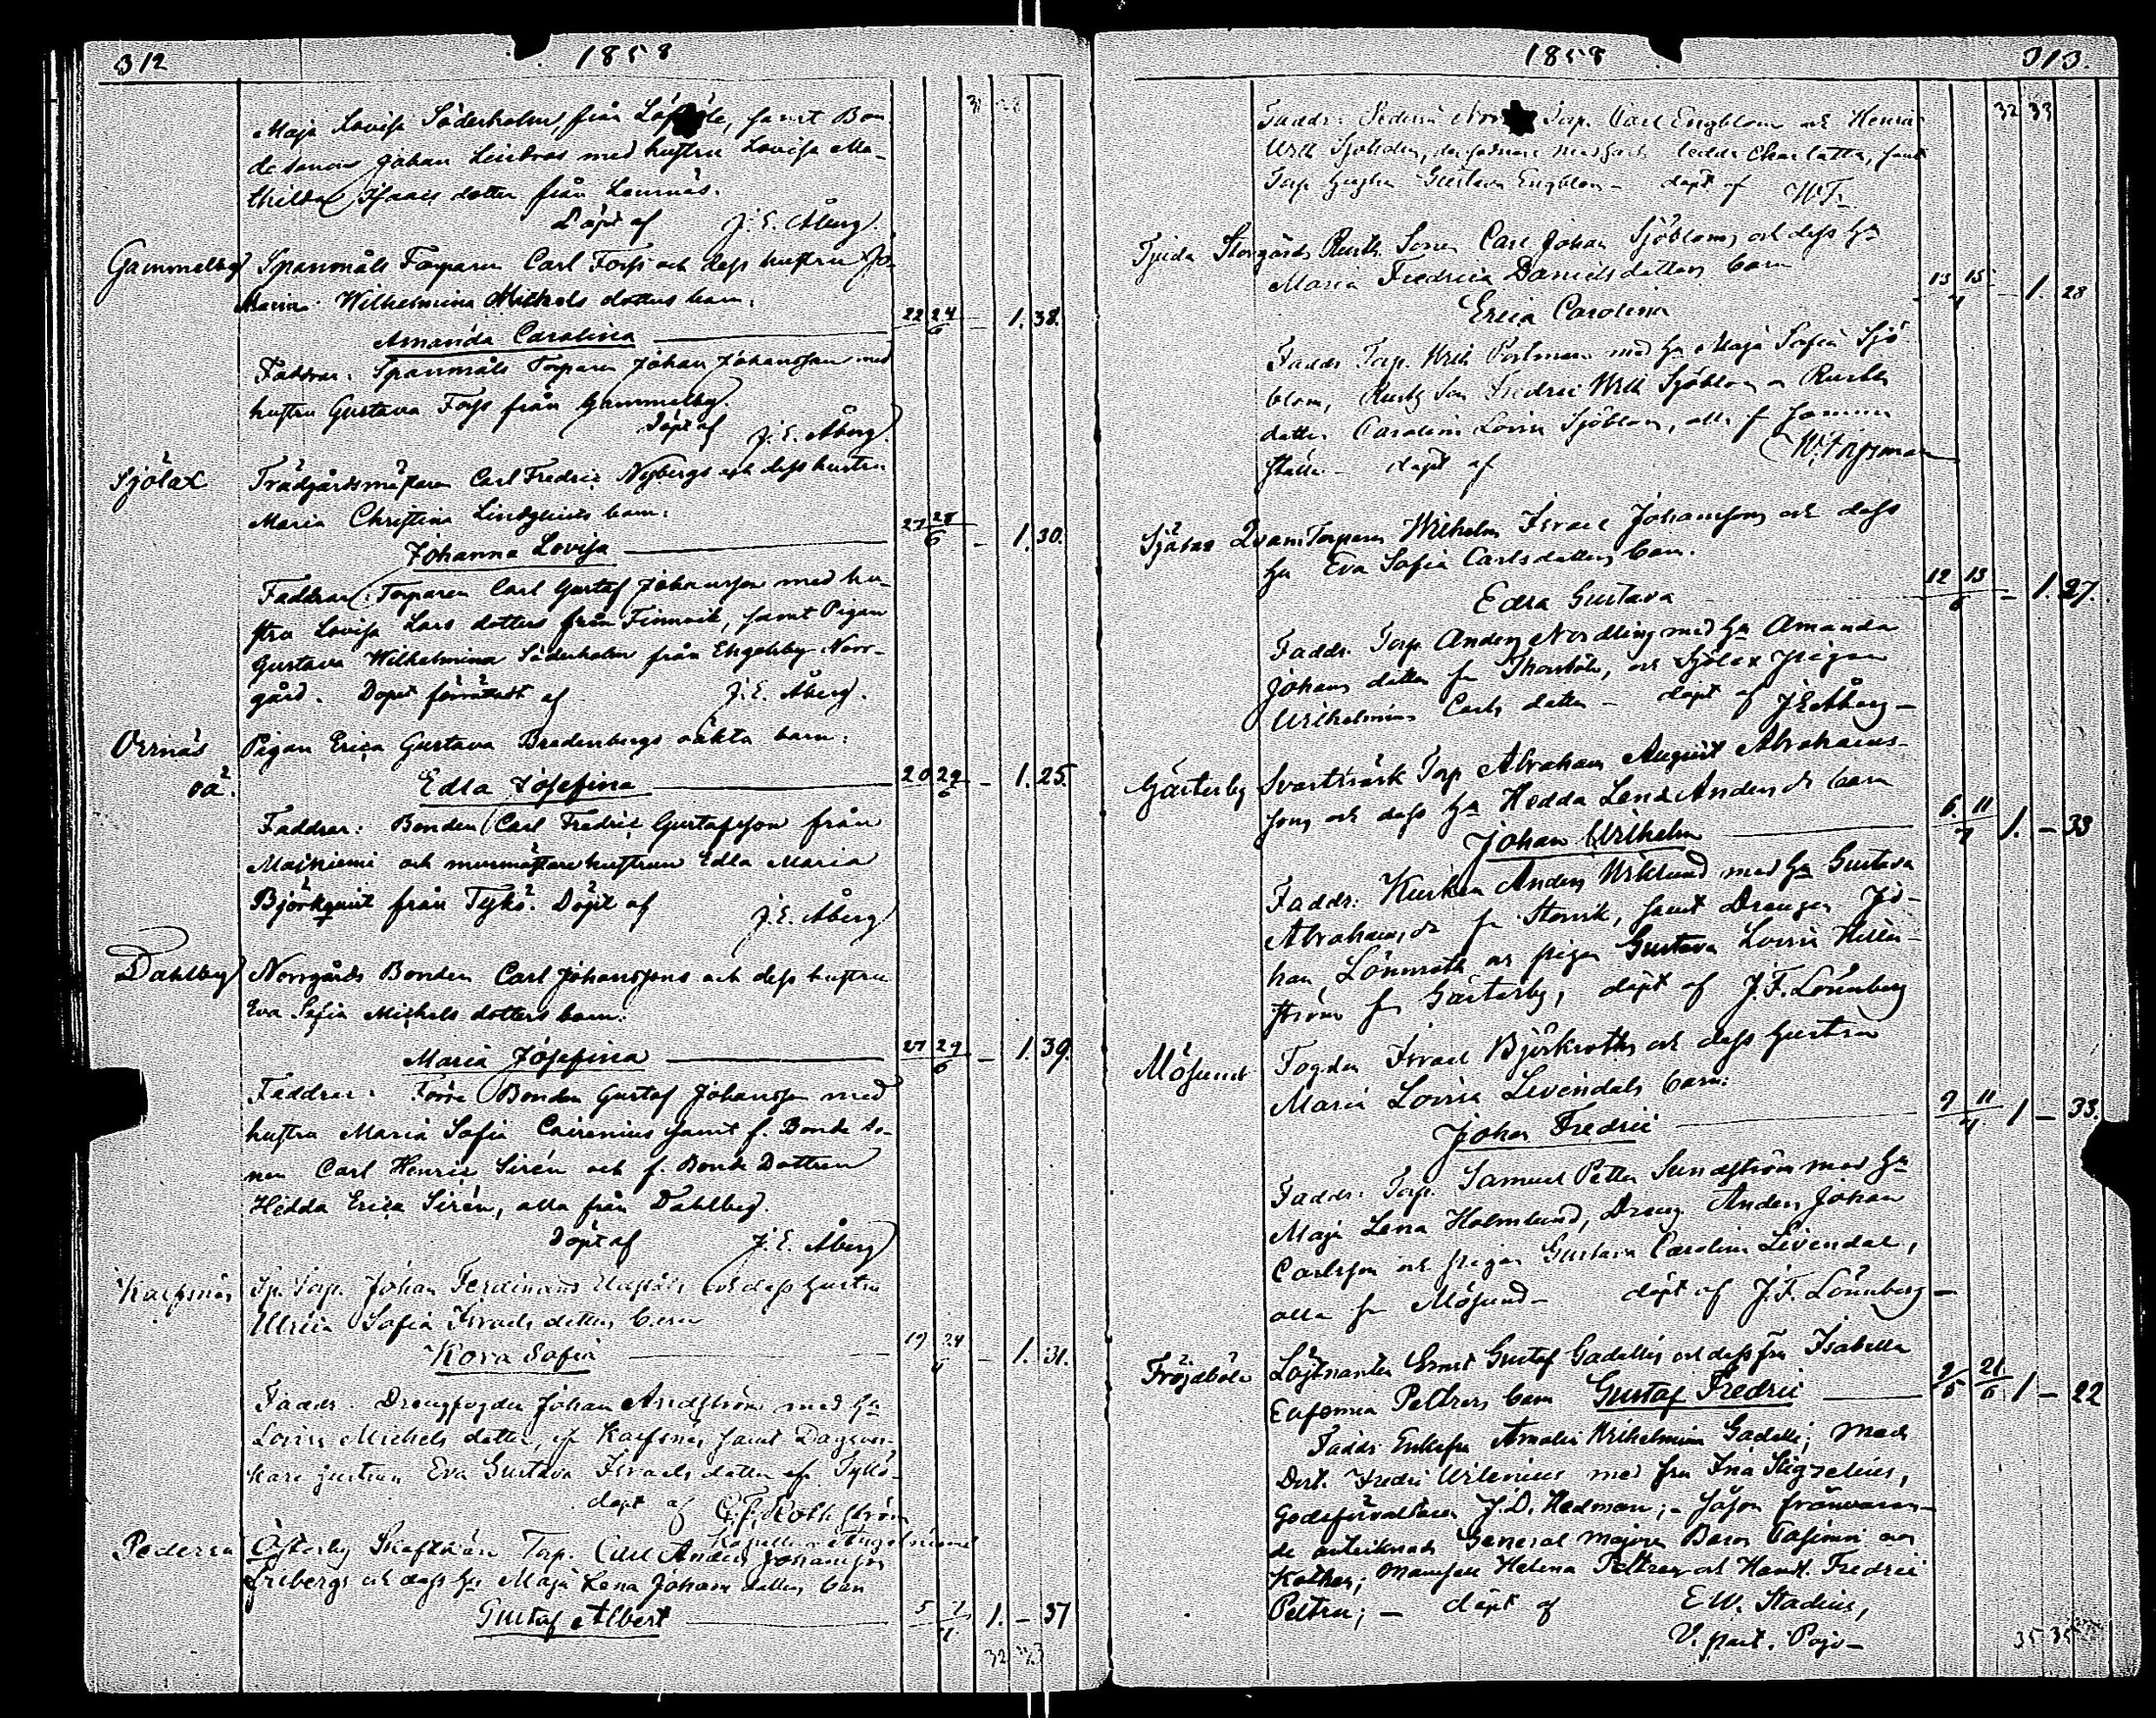 312
1858
Maja Lovisa Söderholm, från samt Bon
de sonen Johan Lindroos med hustru Lovisa Ma-
thilda Isaacs dotter från Lemnäs.
Döpt af J. E. Åberg.
Gammelby Spanmåls Torparen Carl Forss och dess hustru Jo
Maria Wilhelmina Michels dotters barn.
Amanda Carolina 22 24/6 - 1. 38.
Faddrar: Spanmåls Torparen Johan Johansson med
hustru Gustava Forss från Gammelby.
Döpt af J. E. Åberg.
Sjölax Trädgårdsmästaren Carl Fredric Nybergs och dess hustru
Maria Christina Lindqvists barn.
Johanna Lovisa 27 28/6 - 1. 30.
Faddrar: Torparen Carl Gustaf Johansson med hu-
stru Lovisa Lars dotters från Finnvik, samt Pigan
Gustava Wilhelmina Söderholm från Engelsby Norr-
gård. Dopet förrättadt af J. E. Åberg.
Övernäs Pigan Erica Gustava Bredenbergs oäkta barn:
oä. Edla Josefina 20 29/6 - 1. 25.
Faddrar: Bonden Carl Fredric Gustafsson från
Mainiemi och murmästare hustrun Edla Maria
Björkqvist från Tykö. Döpt af J. E. Åberg
Dahlby Norrgårds Bonden Carl Johanssons och dess hustru
Eva Sofia Michels dotters barn.
Maria Josefina 27 29/6 - 1. 39.
Faddrar: Förre Bonden Gustaf Johansson med
hustru Maria Sofia Cairenius samt f. Bonde so-
nen Carl Henric Sirén och f. Bonde Dottren
Hedda Erica Sirén, alla från Dahlby.
Döpt af J. E. Åberg
Sp. Torp. Johan Ferdinand och dess hustru
Ulrica Sofia Israels dotters barn
Kora Sofia 19 24/6 - 1. 31.
Faddr. Drengfogden Johan Andström med hu
Lovisa Michels dotter, samt Dagsver-
kare hustrun Eva Gustava Israels dotter fr Tykö-
döpt af C. F. Rothström
Kapellan Angelniemi
Österby Torp. Carl Anders Johansson
Fribergs och dess hu Maja Lena Johans dotters barn
Gustaf Albert 5 7/7 1. - 37
32 33
1858
313.
32 33
Faddr: Torp. Carl Engblom och Henric
ledde Charlotta, samt
Torp hustru Gustava Engblom - döpt af W. F.
Storgårds Rusth. Sonen Carl Johan Sjöbloms och dess hu
Maria Fredrica Danielsdotters barn
Erica Carolina 13 15/7 - 1. 28
Faddr Torp. Wilh Portman med hu Maja Sofia Sjö-
blom, Rusth son Fredric Wilh Sjöblom o Rusth
dotter Carolina Lovisa Sjöblom, alla fr samma
ställe - döpt af W. Forsman
Sjölax Torparen Wilhelm Israel Johanssons och dess
hu Eva Sofia Carlsdotters barn.
Edla Gustava 12 13/6 - 1. 27.
Faddr. Torp Anders Nordling med hu Amanda
Johans dotter fr och Sjölax pigan
Wilhelmina Carls dotter - döpt af J E Åberg -
Gästerby Svartträsk Torp Abraham August Abrahams-
sons och dess hu Hedda Lena Anders dr barn
Johan Wilhelm 6. 11/7 1. - 33
Faddr: Kusken Anders Wiklund med hu Gustava
Abrahams dr fr Storvik, samt Drengen Jo-
han Lönnroth och pigan Gustava Lovisa Hell-
ström fr Gästerby, döpt af J. F. Lönnberg
Mösund Fogden Israel Björkroths och dess hustru
Maria Lovisa Livendals barn:
Johan Fredric 9 11/7 1 - 33.
Faddr: Torp. Samuel Petter Sundström med hu
Maja Lena Holmlund, Dreng Anders Johan
Carlsson och pigan Gustava Carolina Livendal,
alla fr Mösund - döpt af J. F. Lönnberg -
Fröjdböle Löjtnanten Ernst Gustaf Gadolins och dess fru Isabella
Eufemia Peltzers barn Gustaf Fredric 2/5 21/6 1 - 22
Faddr Enkefru Amalia Wilhelmina Gadolin; med
Fredr Wilenius med fru Ina Stigzelius,
Godsförvaltaren J. D. Hedman; - såsom frånvaran-
de antecknade General Majoren Baron Casimir von
Kothen; Mamsell Helena Peltzer och Handl. Fredric
Peltzer; - döpt af E. W. Stadius,
V. past. Pojo -
35 35